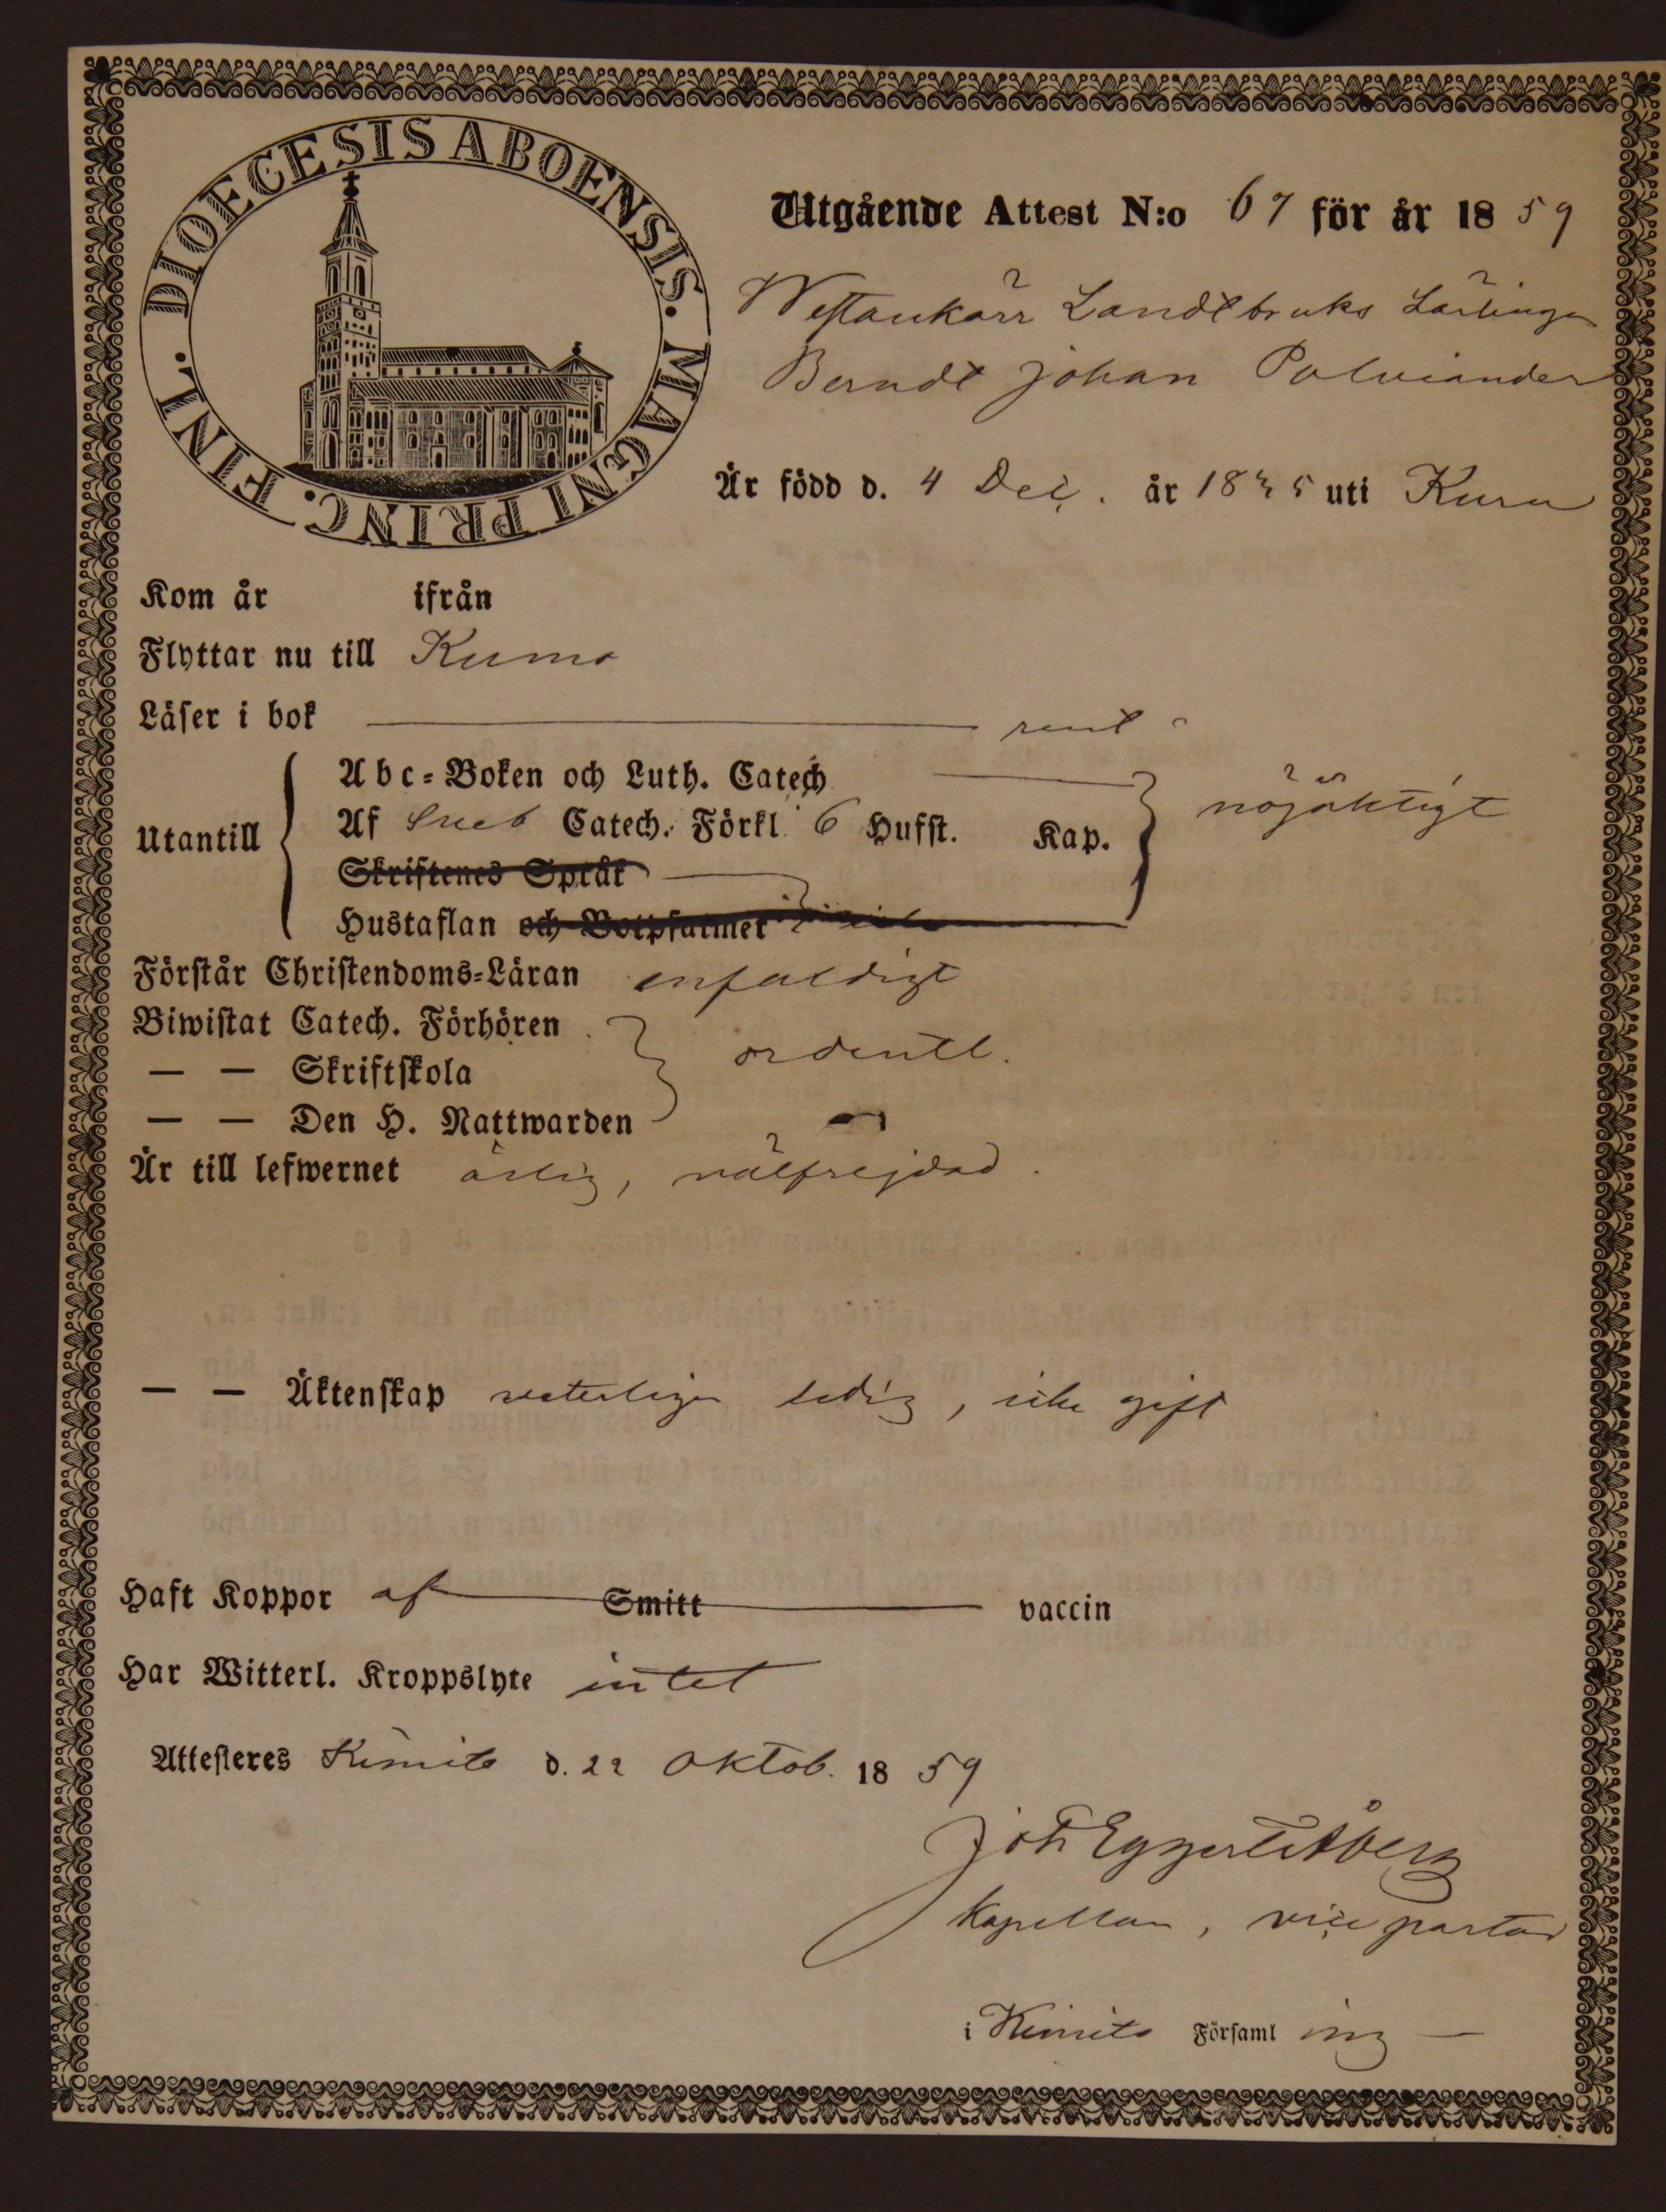 DIOECESIS ABOENSIS. MAGNI PRINC. FINL.
Utgående Attest N:o 67 för år 1859
Westankärr Landtbruks Lärlingen
Berndt Johan Polviander
Är född d. 4 Dec. år 1835 uti Kuru
Kom år ifrån
Flyttar nu till Kumo
Läser i bok rent
Utantill
Abc-Boken och Luth. Catech
Af Sveb Catech. Förkl. 6 Hufst. Kap.
nöjaktigt
Skriftenes Språk
Hustaflan och Botpsalmer
Förstår Christendoms-Läran enfaldigt
Biwistat Catech. Förhören
— — Skriftskola
ordentl.
— — Den H. Nattwarden
Är till lefwernet ärlig, välfrejdad.
— — Äktenskap veterligen ledig, icke gift
Haft Koppor af Smitt vaccin
Har Witterl. Kroppslyte intet
Attesteres Kimito d. 22 Oktob. 1859
Joh Eggert Åberg
Kapellan, vice pastor
i Kimito Församling